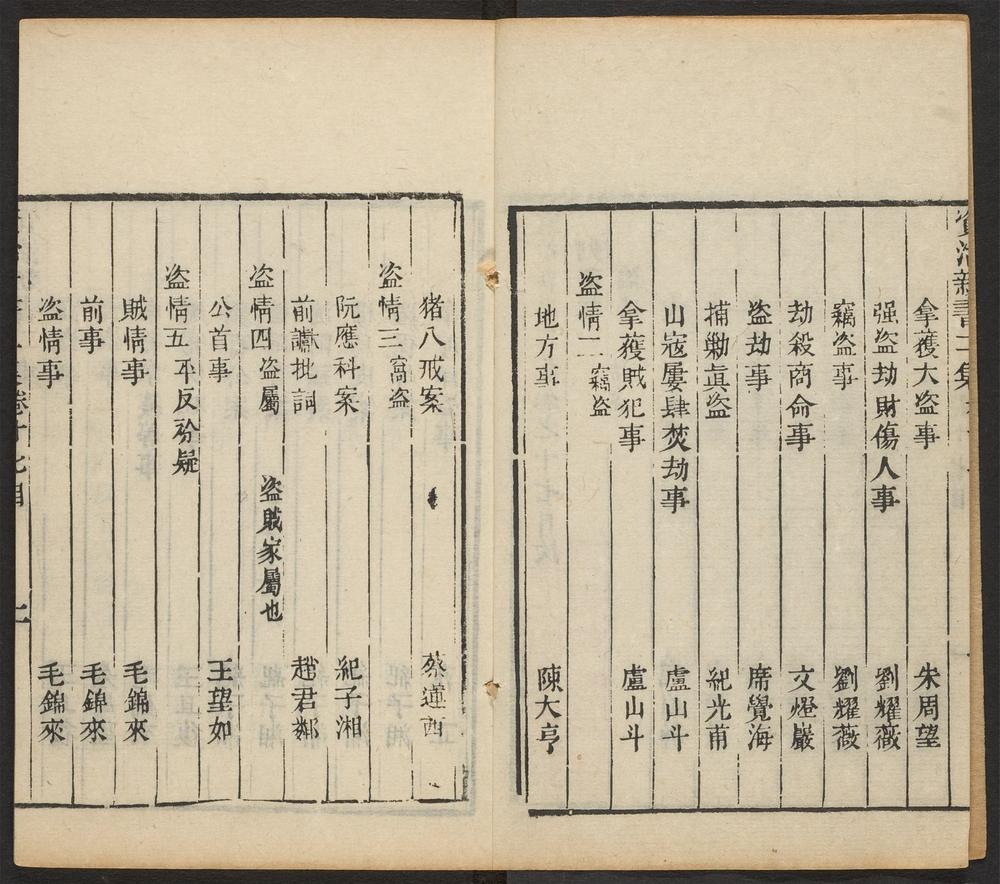 資治新書二集
拿獲大盗事 朱周望
强盗劫財傷人事 劉耀薇
竊盗事 劉耀薇
劫殺商命事 文燈巖
盗劫事 席覺海
捕勦眞盗 紀光甫
山寇屢肆焚劫事 盧山斗
拿獲賊犯事 盧山斗
盗情二 竊盗
地方事 陳大亨
猪八戒案 蔡蓮西
盗情三 窩盗
阮應科案 紀子湘
前讞批詞 趙君鄰
盗情四盗屬 盗賊家屬也
公首事 王望如
盗情五平反矜疑
賊情事 毛錦來
前事 毛錦來
盗情事 毛錦來